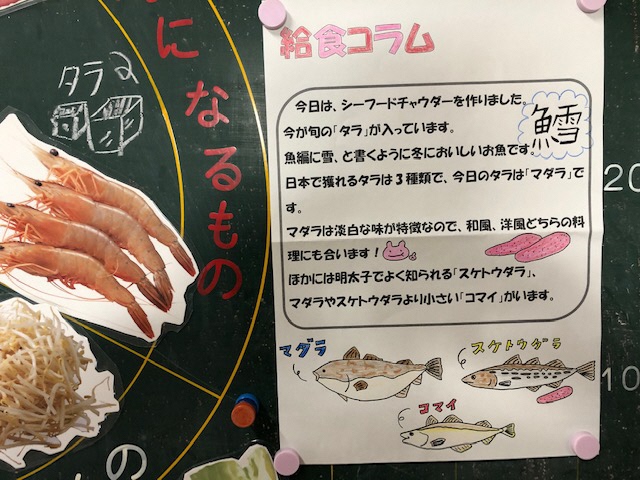 になるもの
タラ
の
給食コラム
今日は、シーフードチャウダーを作りました。
今が旬の「タラ」が入っています。
魚編に雪、と書くように冬においしいお魚です。
日本で獲れるタラは３種類で、今日のタラは「マダラ」で
す。
マダラは淡白な味が特徴なので、和風、洋風どちらの料
理にも合います！
ほかには明太子でよく知られる「スケトウダラ」、
マダラやスケトウダラより小さい「コマイ」がいます。
鱈
マダラ
スケトウダラ
コマイ
20
10